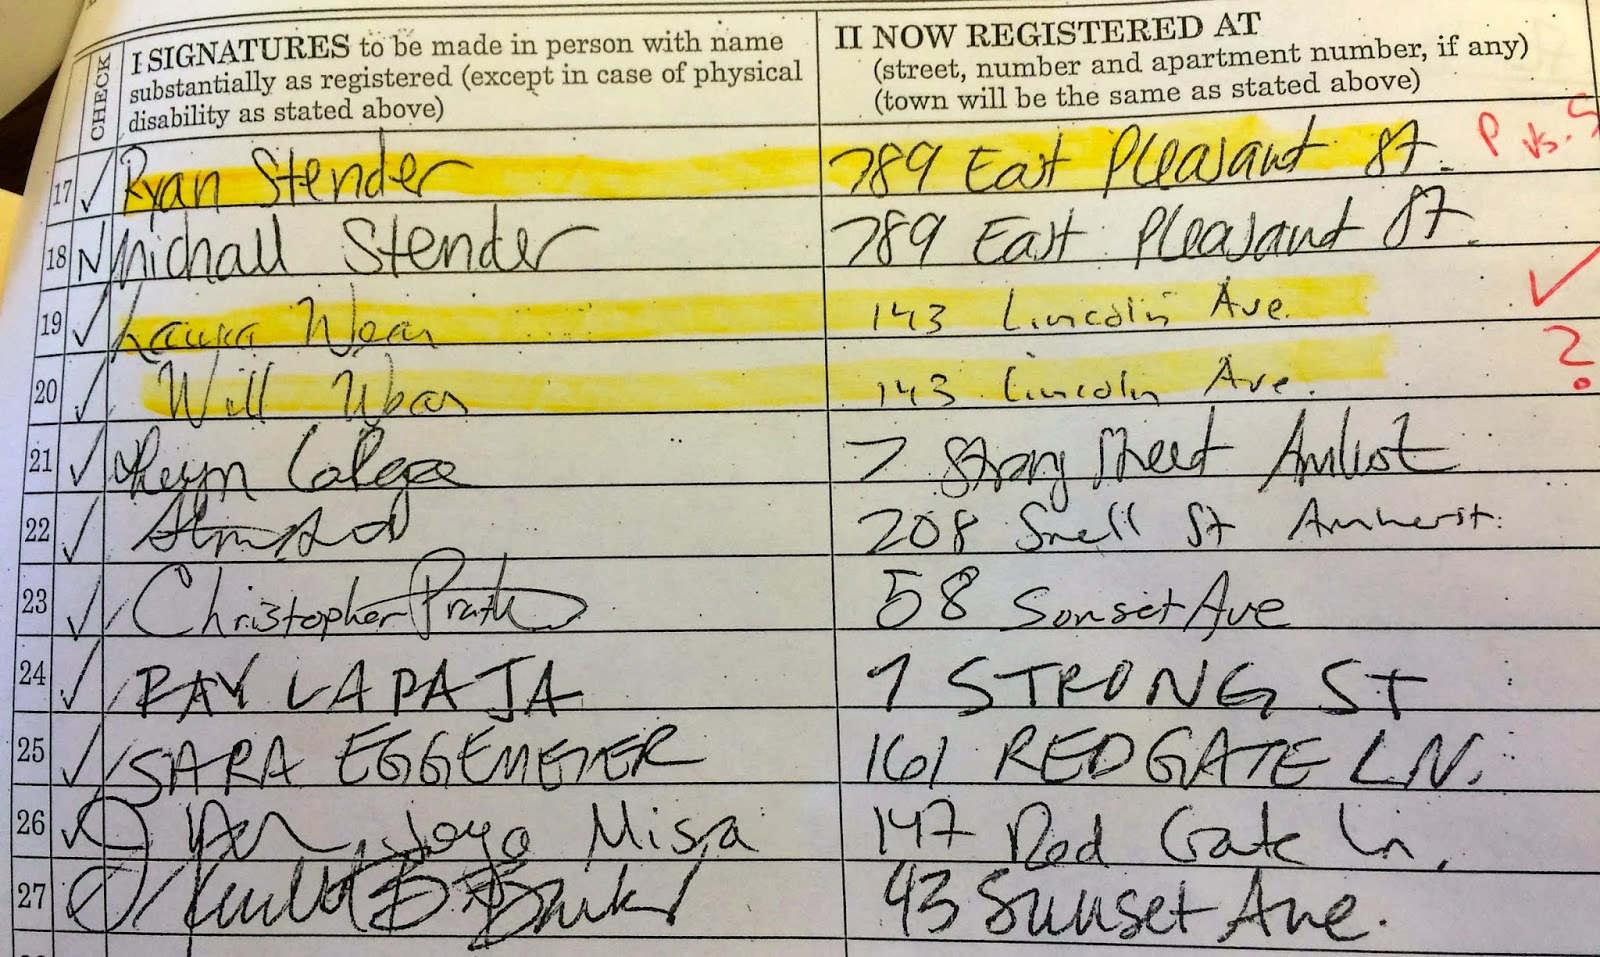 CHECK
I SIGNATURES to be made in person with name
substantially as registered (except in case of physical
disability as stated above)
II NOW REGISTERED AT
(street, number and apartment number, if any)
(town will be the same as stated above)
17 ✓ Ryan Stender 789 East Pleasant St. P vs. S
18 N Michall Stender 789 East Pleasant St.
19 ✓ Laura 143 Lincoln Ave. ✓
20 ✓ Will 143 Lincoln Ave. ?
21 ✓ 7 Strong Street Amherst
22 ✓ 208 Snell St Amherst
23 ✓ Christopher Pratt 58 Sunset Ave
24 ✓ RAY LAPAJA 7 STRONG ST
25 ✓ SARA EGGEMEYER 161 RED GATE LN.
26 ✓ Misra 147 Red Gate Ln.
27 43 Sunset Ave.